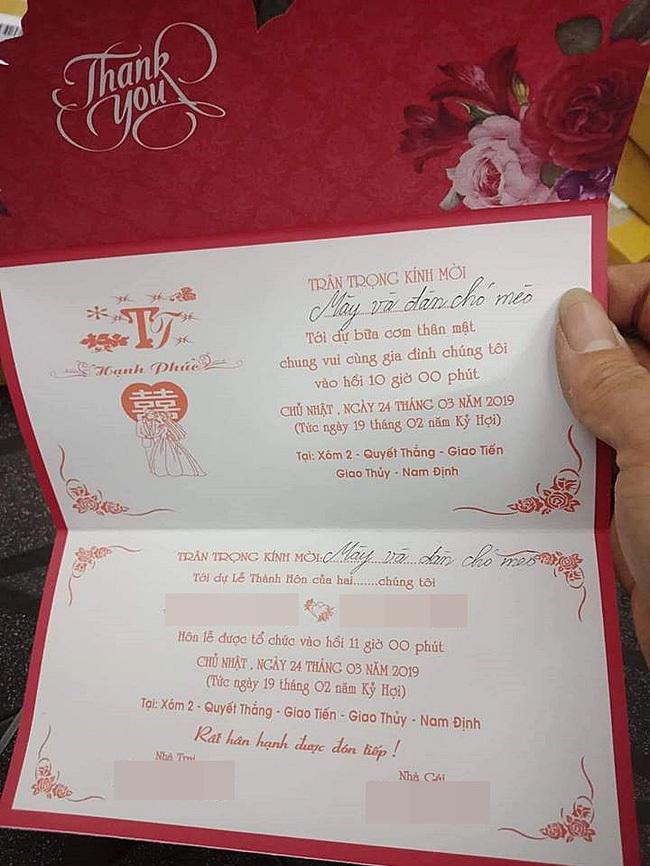 Thank
you
TRÂN TRỌNG KÍNH MỜI
Mày và đàn chó mèo
Tới dự bữa cơm thân mật
chung vui cùng gia đình chúng tôi
vào hồi 10 giờ 00 phút
CHỦ NHẬT , NGÀY 24 THÁNG 03 NĂM 2019
(Tức ngày 19 tháng 02 năm Kỷ Hợi)
Tại: Xóm 2 - Quyết Thắng - Giao Tiến
Giao Thủy - Nam Định
TT
Hạnh Phúc
囍
TRÂN TRỌNG KÍNH MỜI: Mày và đàn chó mèo
Tới dự Lễ Thành Hôn của hai.......chúng tôi
Hôn lễ được tổ chức vào hồi 11 giờ 00 phút
CHỦ NHẬT , NGÀY 24 THÁNG 03 NĂM 2019
(Tức ngày 19 tháng 02 năm Kỷ Hợi)
Tại: Xóm 2 - Quyết Thắng - Giao Tiến - Giao Thủy - Nam Định
Rất hân hạnh được đón tiếp !
Nhà Trai
Nhà Gái